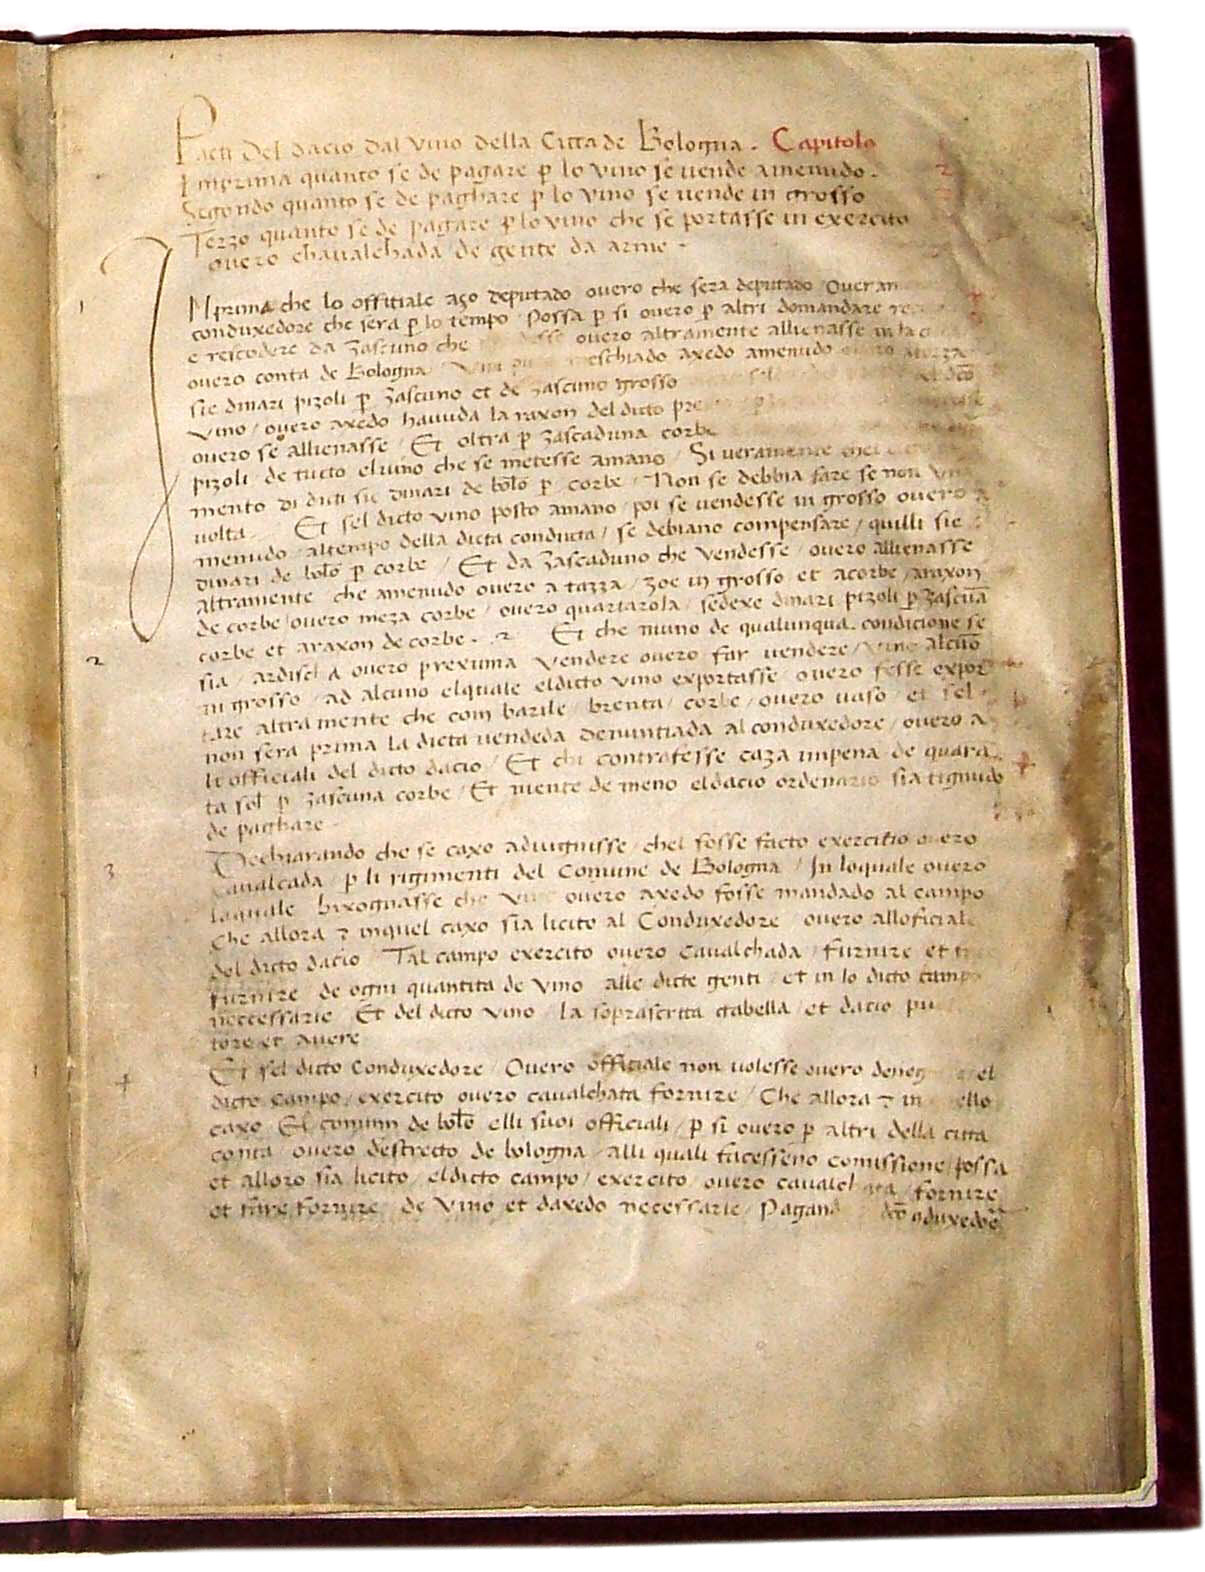 Pacti del dacio dal vino della Citta de Bologna . Capitolo
Imprima quanto se de pagare p lo vino se vende amenudo . 2
Segondo quanto se de paghare p lo vino se vende in grosso
Terzo quanto se de pagare p lo vino che se portasse in exercito
overo chavalchada de gente da arme .
1 INprima che lo offitiale aço deputado overo che sera deputado Over
conduxedore che sera p lo tempo Possa p si overo p altri domandare
e rescodere da zascuno che overo altramente allienasse in la
overo conta de Bologna meschiado axedo amenudo
sie dinari pizoli p zascuno et de zascuno grosso
vino / overo axedo havuda la raxon del dicto
overo se allienasse / Et oltra p zascaduna corbe
pizoli de tucto el vino che se metesse amano / Si veramente
mento di diti sie dinari de bolo p corbe / Non se debbia fare se non
volta Et sel dicto vino posto amano / poi se vendesse in grosso overo a
menudo / altempo della dicta conducta / se debiano compensare / quilli sie
dinari de bolo p corbe / Et da zascaduno che vendesse / overo allienasse
altramente che amenudo overo a tazza / zoe in grosso et acorbe / araxon
de corbe overo meza corbe / overo quartarola / sedexe dinari pizoli p zascua
corbe et araxon de corbe . 2 Et che niuno de qualunqua condicione se
2 sia / ardischa overo prexuma vendere overo far vendere / vino alcuo
in grosso / ad alcuno elquale eldicto vino exportasse / overo fesse expor
tare altramente che com barile / brenta / corbe / overo vaso / et sel
non sera prima la dicta vendeda denuntiada al conduxedore / overo a
li officiali del dicto dacio / Et chi contrafesse caza inpena de quara
ta sol p zascuna corbe / Et niente de meno eldacio ordenario sia tignudo
de paghare .
3 Dechiarando che se caxo advignisse / chel fosse facto exercitio overo
cavalcada / p li rigimenti del Comune de Bologna / In loquale overo
laquale bixognasse che vino overo axedo fosse mandado al campo
Che allora 7 inquel caxo sia licito al Conduxedore / overo alloficial
del dicto dacio Tal campo exercito overo cavalchada / furnire et
furnire de ogni quantita de vino alle dicte genti / et in lo dicto campo
neccessarie Et del dicto vino la soprascritta gabella / et dacio
tore et avere
Et sel dicto Conduxedore / Overo officiale non volesse overo el
dicto campo / exercito overo cavalchata fornire / Che allora 7 in
caxo El comun de bolo elli suoi officiali / p si overo p altri della citta
conta / overo destrecto de bologna / alli quali facesseno comissione / possa
et alloro sia licito / eldicto campo / exercito / overo cavalchata / fornire
et fare fornire / de vino et daxedo necessarie / dco 9duxedore